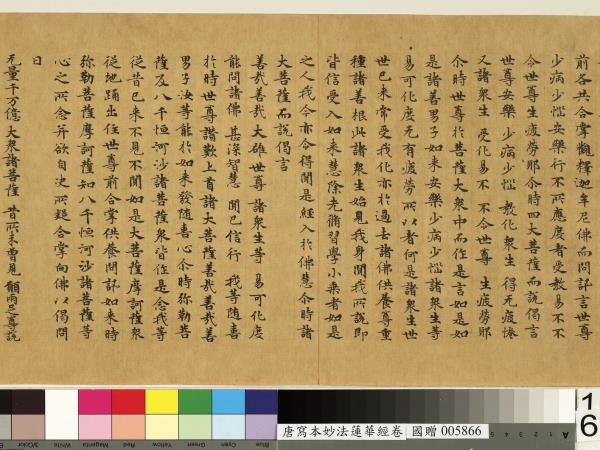 前各共合掌觀釋迦牟尼佛而問訊言世尊
少病少惱安樂行不所應度者受教易不不
令世尊生疲勞耶尒時四大菩薩而說偈言
世尊安樂 少病少惱 教化衆生 得无疲惓
又諸衆生 受化易不 不令世尊 生疲勞耶
尒時世尊於菩薩大衆中而作是言如是如
是諸善男子如來安樂少病少惱諸衆生等
易可化度无有疲勞所以者何是諸衆生世
世已來常受我化亦於過去諸佛供養尊重
種諸善根此諸衆生始見我身聞我所說即
皆信受入如來慧除先脩習學小乘者如是
之人我今亦令得聞是經入於佛慧尒時諸
大菩薩而說偈言
善哉善哉 大雄世尊 諸衆生等 易可化度
能問諸佛 甚深智慧 聞已信行 我等隨喜
於時世尊讚歎上首諸大菩薩善哉善哉善
男子汝等能於如來發隨喜心尒時弥勒菩
薩及八千恒河沙諸菩薩衆皆作是念我等
從昔已來不見不聞如是大菩薩摩訶薩衆
從地踊出住世尊前合掌供養問訊如來時
弥勒菩薩摩訶薩知八千恒河沙諸菩薩等
心之所念并欲自决所疑合掌向佛以偈問
曰
无量千万億 大衆諸菩薩 昔所未曾見 願兩足尊說
3/Color White Magenta Red Yellow Green Cyan Blue
唐寫本妙法蓮華經卷 國贈 005866
A
16